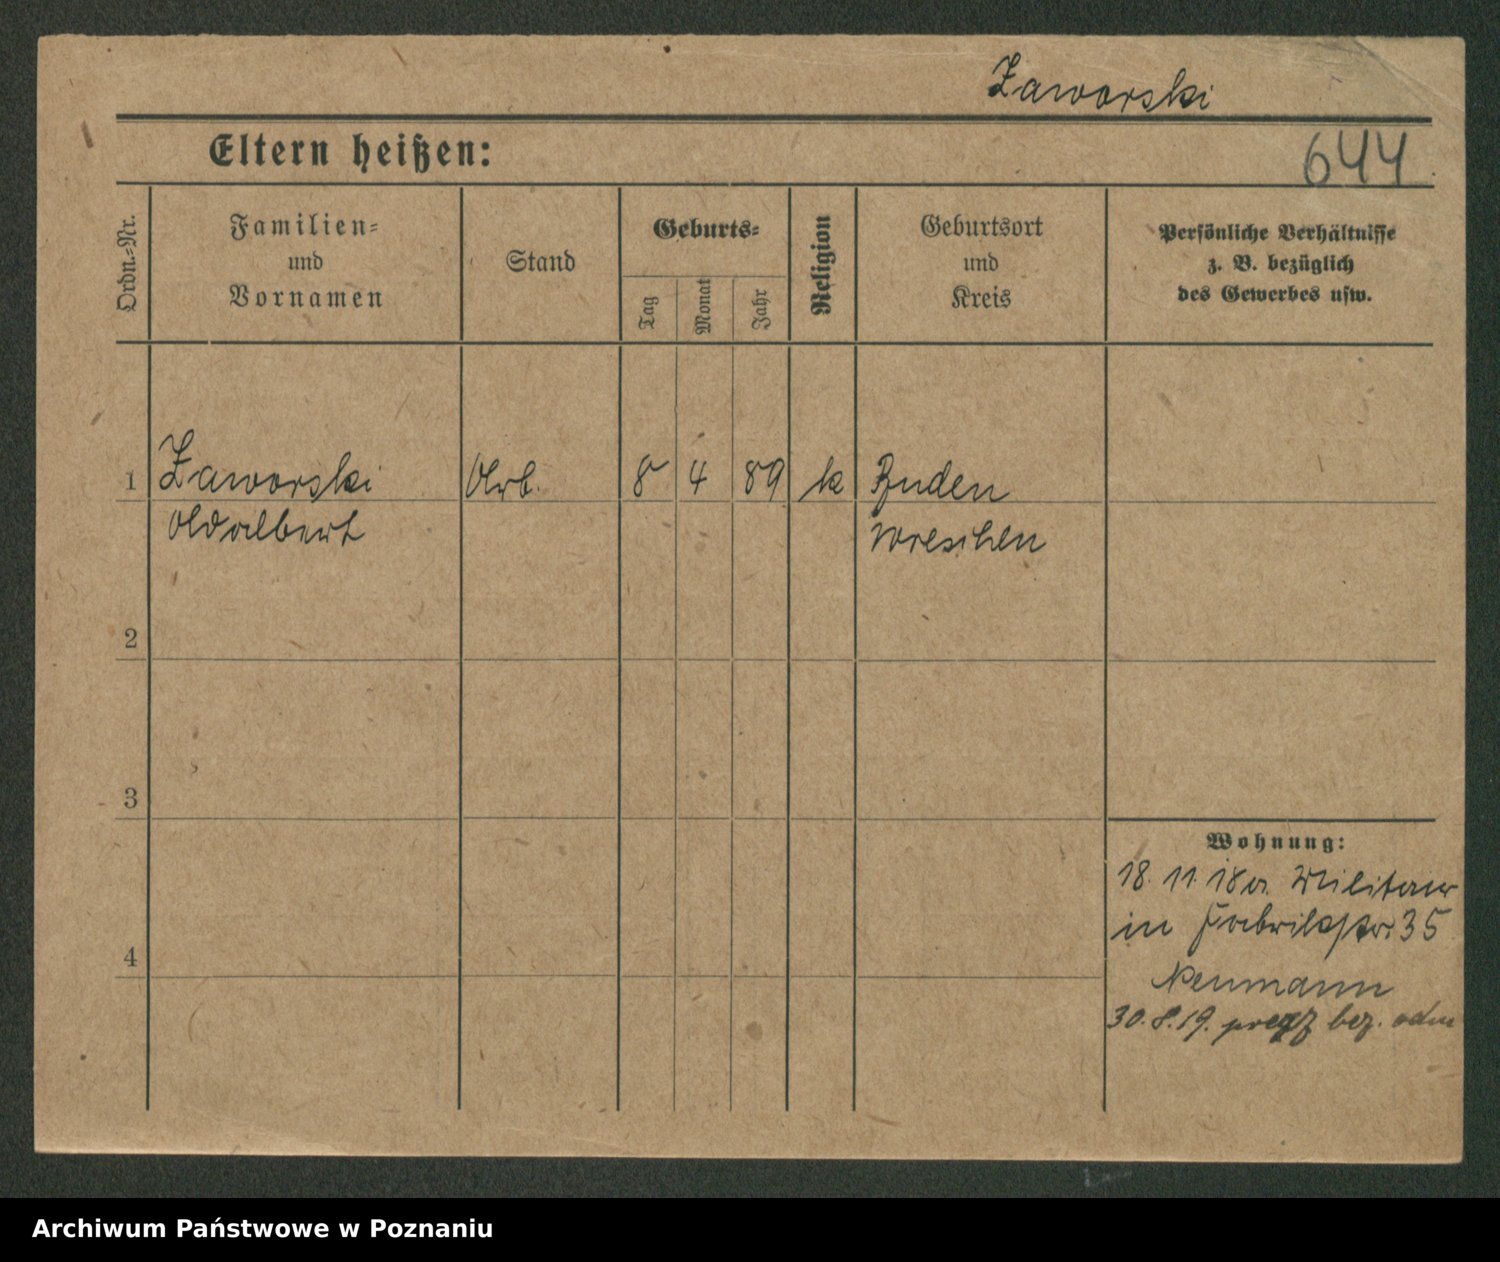 Zaworski
Eltern heißen:
644
Ordn.-Nr.
Familien-
und
Vornamen
Stand
Geburts-
Tag
Monat
Jahr
Religion
Geburtsort
und
Kreis
Persönliche Verhältnisse
z. B. bezüglich
des Gewerbes usw.
1
Zaworski
Arb.
8
4
89
k
Buden
Adalbert
Wreschen
2
3
Wohnung:
18. 11. 18 a. Militär
in Fabrikstr. 35
4
Neumann
30.8.19. bez. odm
Archiwum Państwowe w Poznaniu